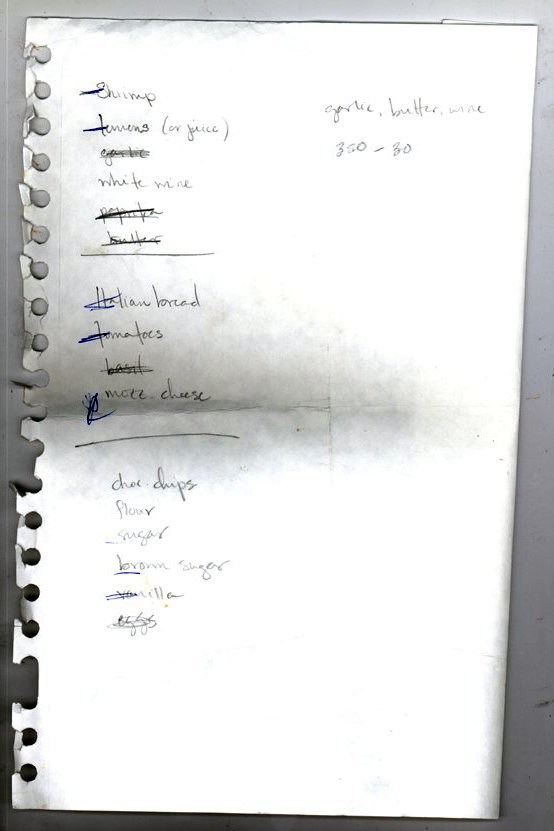 Shrimp
lemons (or juice)
garlic
white wine
paprika
butter
Italian bread
tomatoes
basil
mozz. cheese
choc. chips
flour
sugar
brown sugar
vanilla
eggs
garlic, butter, wine
350 - 30